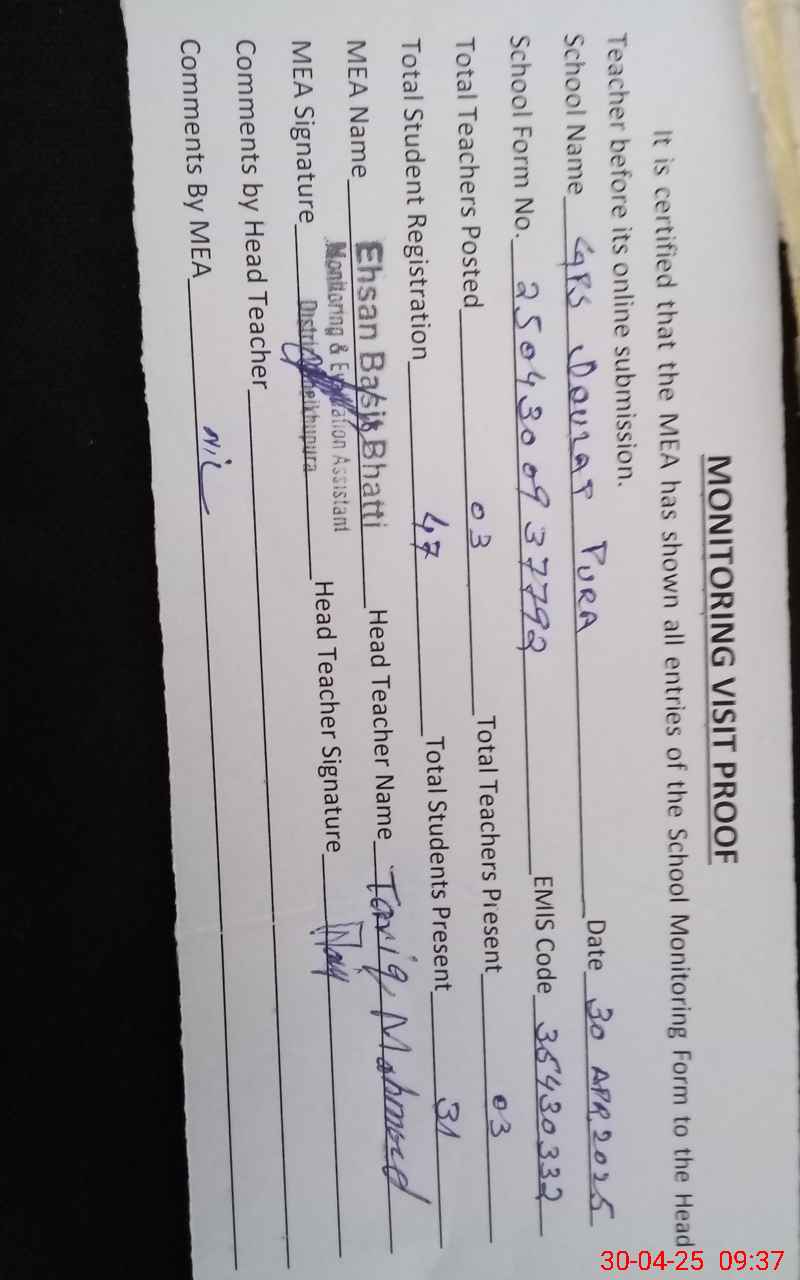 MONITORING VISIT PROOF
It is certified that the MEA has shown all entries of the School Monitoring Form to the Head
Teacher before its online submission.
School Name GPS Doulat Pura Date 30 APR 2025
School Form No. 25043009 37792 EMIS Code 35430332
Total Teachers Posted 03 Total Teachers Present 03
Total Student Registration 47 Total Students Present 31
MEA Name Ehsan Basit Bhatti Head Teacher Name Tariq Mahmood
Monitoring & Evaluation Assistant
MEA Signature District Sheikhupura Head Teacher Signature
Comments by Head Teacher
Comments By MEA Nil
30-04-25 09:37